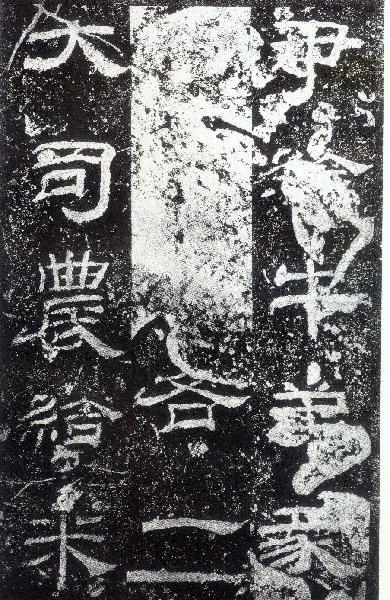 尹給牛羊豕
各二
大司農給米